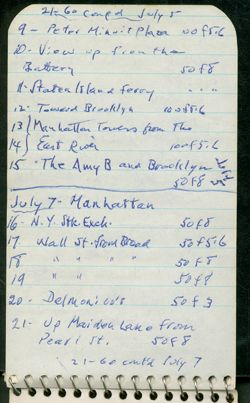 21-60 cont'd July 5
9 - Peter Minuit Plaza 100 f5.6
10 - View up from the
Battery 50 f8
11 - Staten Island ferry " " "
12 - Toward Brooklyn 100 f5.6
13 } Manhattan Towers from the
14 } East River 100 f5.6
15 - The Amy B and Brooklyn
50 f8
July 7 - Manhattan
16 - N.Y. Stk Exch. 50 f8
17 Wall St. from Broad 50 f5.6
18 " " " 50 f8
19 50 f8
20 - Delmonico's 50 f3
21 - Up Maiden Lane from
Pearl St. 50 f8
21-60 until July 7